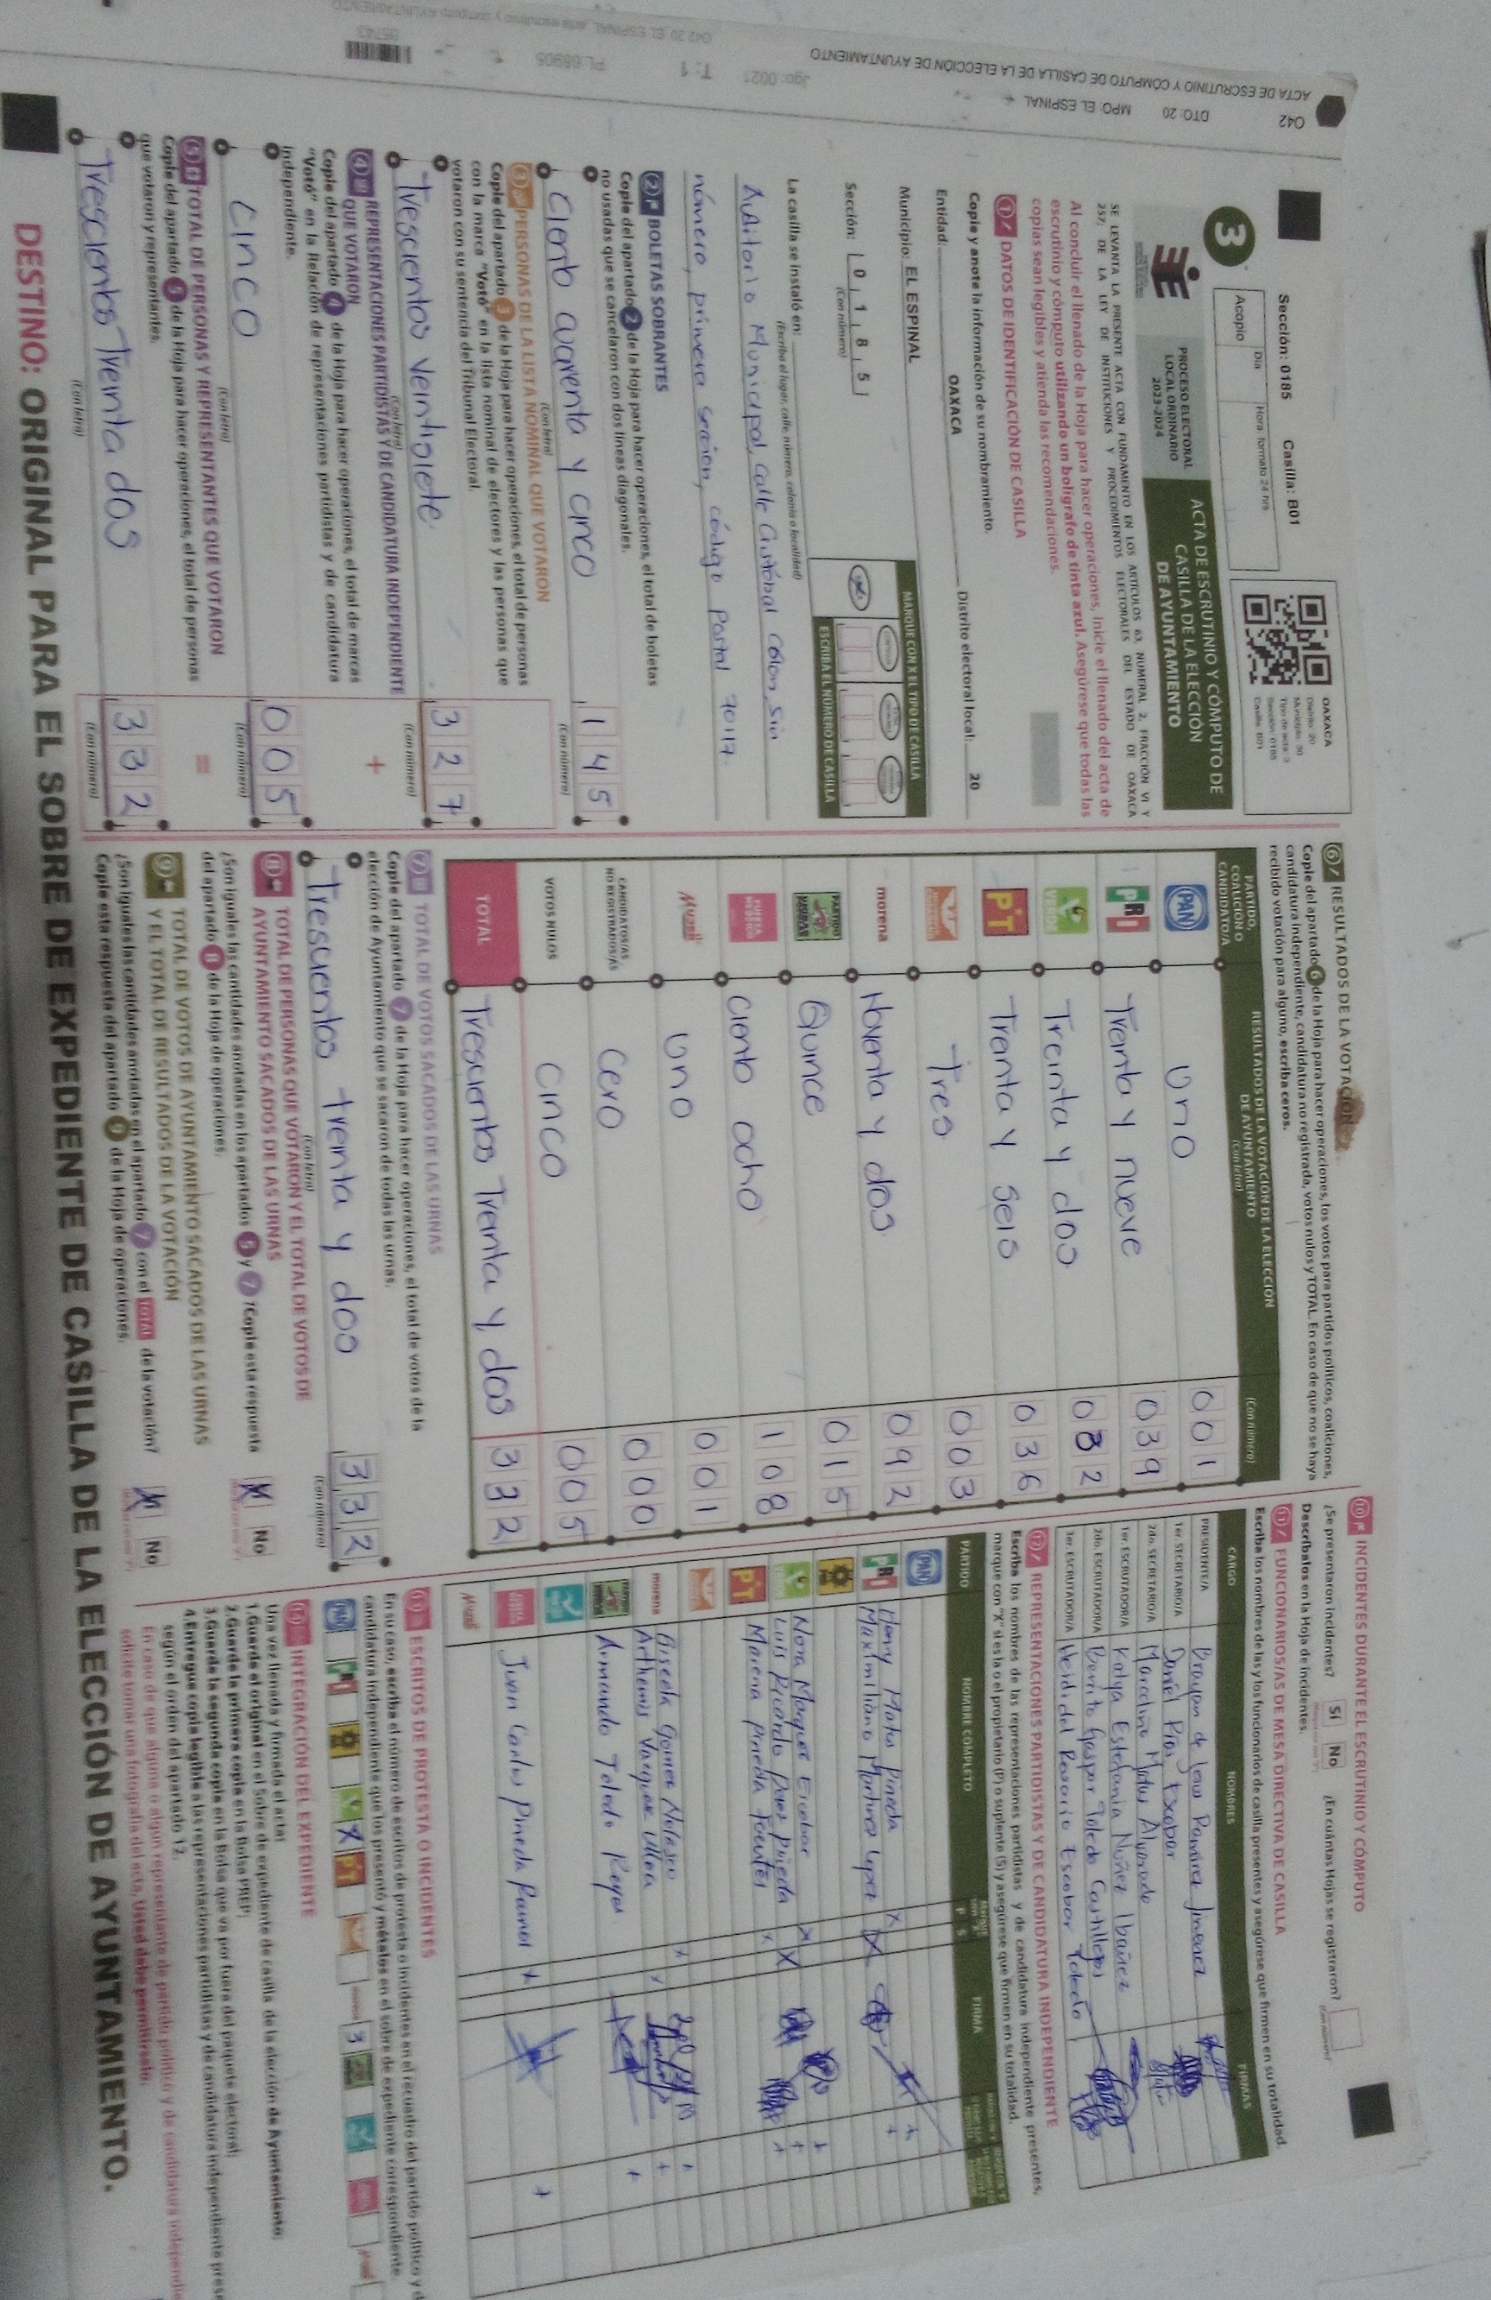 ACTA DE ESCRUTINIO Y CÓMPUTO DE CASILLA DE LA ELECCIÓN DE AYUNTAMIENTO
042 DTO: 20 MPO: EL ESPINAL
Sección: 0185 Casilla: B01
Día Hora formato 24 hrs
Acopio
OAXACA
3
PROCESO ELECTORAL
LOCAL ORDINARIO
2023-2024
ACTA DE ESCRUTINIO Y CÓMPUTO DE
CASILLA DE LA ELECCIÓN
DE AYUNTAMIENTO
SE LEVANTA LA PRESENTE ACTA CON FUNDAMENTO EN LOS ARTÍCULOS 63, NUMERAL 2, FRACCIÓN VI Y
257; DE LA LEY DE INSTITUCIONES Y PROCEDIMIENTOS ELECTORALES DEL ESTADO DE OAXACA
Al concluir el llenado de la Hoja para hacer operaciones, inicie el llenado del acta de
escrutinio y cómputo utilizando un bolígrafo de tinta azul. Asegúrese que todas las
copias sean legibles y atienda las recomendaciones.
1 DATOS DE IDENTIFICACIÓN DE CASILLA
Copie y anote la información de su nombramiento.
Entidad: OAXACA Distrito electoral local: 20
Municipio: EL ESPINAL
MARQUE CON X EL TIPO DE CASILLA
Sección: 0185
(Con número)
ESCRIBA EL NÚMERO DE CASILLA
La casilla se instaló en:
(Escriba el lugar, calle, número, colonia o localidad)
Auditorio Municipal, calle Cristóbal Colón, Sin
número, primera sección, código Postal 70117.
2 BOLETAS SOBRANTES
Copie del apartado 2 de la Hoja para hacer operaciones, el total de boletas
no usadas que se cancelaron con dos líneas diagonales.
Ciento cuarenta y cinco 145
(Con letra) (Con número)
3 PERSONAS DE LA LISTA NOMINAL QUE VOTARON
Copie del apartado 3 de la Hoja para hacer operaciones, el total de personas
con la marca "Votó" en la lista nominal de electores y las personas que
votaron con su sentencia del Tribunal Electoral.
Trescientos veintisiete 327
(Con letra) (Con número)
4 REPRESENTACIONES PARTIDISTAS Y DE CANDIDATURA INDEPENDIENTE
QUE VOTARON +
Copie del apartado 4 de la Hoja para hacer operaciones, el total de marcas
"Votó" en la Relación de representaciones partidistas y de candidatura
independiente.
cinco 005
(Con letra) (Con número)
5 TOTAL DE PERSONAS Y REPRESENTANTES QUE VOTARON =
Copie del apartado 5 de la Hoja para hacer operaciones, el total de personas
que votaron y representantes.
Trescientos Treinta dos 332
(Con letra) (Con número)
6 RESULTADOS DE LA VOTACIÓN
Copie del apartado 6 de la Hoja para hacer operaciones, los votos para partidos políticos, coaliciones,
candidatura independiente, candidatura no registrada, votos nulos y TOTAL. En caso de que no se haya
recibido votación para alguno, escriba ceros.
PARTIDO, COALICIÓN O CANDIDATO/A
RESULTADOS DE LA VOTACIÓN DE LA ELECCIÓN
DE AYUNTAMIENTO
(Con letra) (Con número)
PAN Uno 001
PRI Treinta y nueve 039
VERDE Treinta y dos 032
PT Treinta y seis 036
Tres 003
morena Noventa y dos 092
Quince 015
FUERZA MÉXICO Ciento ocho 108
Mujer Uno 001
CANDIDATOS/AS NO REGISTRADOS/AS Cero 000
VOTOS NULOS Cinco 005
TOTAL Trescientos Treinta y dos 332
7 TOTAL DE VOTOS SACADOS DE LAS URNAS
Copie del apartado 7 de la Hoja para hacer operaciones, el total de votos de la
elección de Ayuntamiento que se sacaron de todas las urnas.
Trescientos treinta y dos 332
(Con letra) (Con número)
8 TOTAL DE PERSONAS QUE VOTARON Y EL TOTAL DE VOTOS DE
AYUNTAMIENTO SACADOS DE LAS URNAS
¿Son iguales las cantidades anotadas en los apartados 5 y 7? Copie esta respuesta
del apartado 8 de la Hoja de operaciones.
No
9 TOTAL DE VOTOS DE AYUNTAMIENTO SACADOS DE LAS URNAS
Y EL TOTAL DE RESULTADOS DE LA VOTACIÓN
¿Son iguales las cantidades anotadas en el apartado 7 con el TOTAL de la votación?
Copie esta respuesta del apartado 9 de la Hoja de operaciones.
No
10 INCIDENTES DURANTE EL ESCRUTINIO Y CÓMPUTO
¿Se presentaron incidentes? Sí No ¿En cuántas Hojas se registraron?
Descríbalos en la Hoja de incidentes.
11 FUNCIONARIOS/AS DE MESA DIRECTIVA DE CASILLA
Escriba los nombres de las y los funcionarios de casilla presentes y asegúrese que firmen en su totalidad.
CARGO NOMBRES FIRMAS
PRESIDENTE/A Brayan de Jesus Ramirez Jimenez
1er. SECRETARIO/A Daniel Rios Escobar
2do. SECRETARIO/A Marcelino Matus Alvarado
1er. ESCRUTADOR/A Katya Estefania Nuñez Ibañez
2do. ESCRUTADOR/A Benito Gaspar Toledo Castillejos
3er. ESCRUTADOR/A Heididel Rosario Escobar Toledo
12 REPRESENTACIONES PARTIDISTAS Y DE CANDIDATURA INDEPENDIENTE
Escriba los nombres de las representaciones partidistas y de candidatura independiente presentes,
marque con "X" si es la o el propietario (P) o suplente (S) y asegúrese que firmen en su totalidad.
PARTIDO NOMBRE COMPLETO P S FIRMA
PAN
PRI Henry Matus Pineda
Maximiliano Martinez Lopez
Nora Marquez Escobar
Luis Ricardo Pineda
PT Marena Pineda Fuentes
morena Gisela Gomez Nolasco
Arthemis Vazquez Ulloa
Armando Toledo Reyes
Juan Carlos Pineda
13 ESCRITOS DE PROTESTA O INCIDENTES
En su caso, escriba el número de escritos de protesta o incidentes en el recuadro del partido político y
candidatura independiente que los presentó y métalos en el sobre de expediente correspondiente.
PAN PRI X PT 3
14 INTEGRACIÓN DEL EXPEDIENTE
Una vez llenada y firmada el acta:
1. Guarde el original en el Sobre de expediente de casilla de la elección de Ayuntamiento.
2. Guarde la primera copia en la Bolsa PREP.
3. Guarde la segunda copia en la Bolsa que va por fuera del paquete electoral.
4. Entregue copia legible a las representaciones partidistas y de candidatura independiente
según el orden del apartado 12.
En caso de que alguna o algún representante de partido político y de candidatura
solicite tomar una fotografía del acta, Usted debe permitírselo.
DESTINO: ORIGINAL PARA EL SOBRE DE EXPEDIENTE DE CASILLA DE LA ELECCIÓN DE AYUNTAMIENTO.